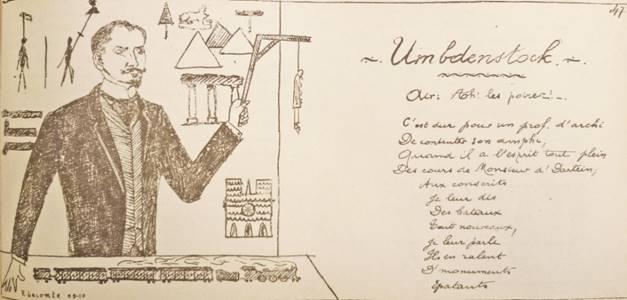 47
~. Umbdenstock .~
Air: Ah! les poires! _
C'est dur pour un prof. d'archi
De contenter son amphi,
Quand il a l'esprit tout plein
Des cours de Monsieur d'Dartein;
Aux conscrits
Je leur dis
Des bateaux
Tout nouveaux,
Je leur parle
Ils en ralent
D'monuments
Epatants
R. Lecomte 09-10